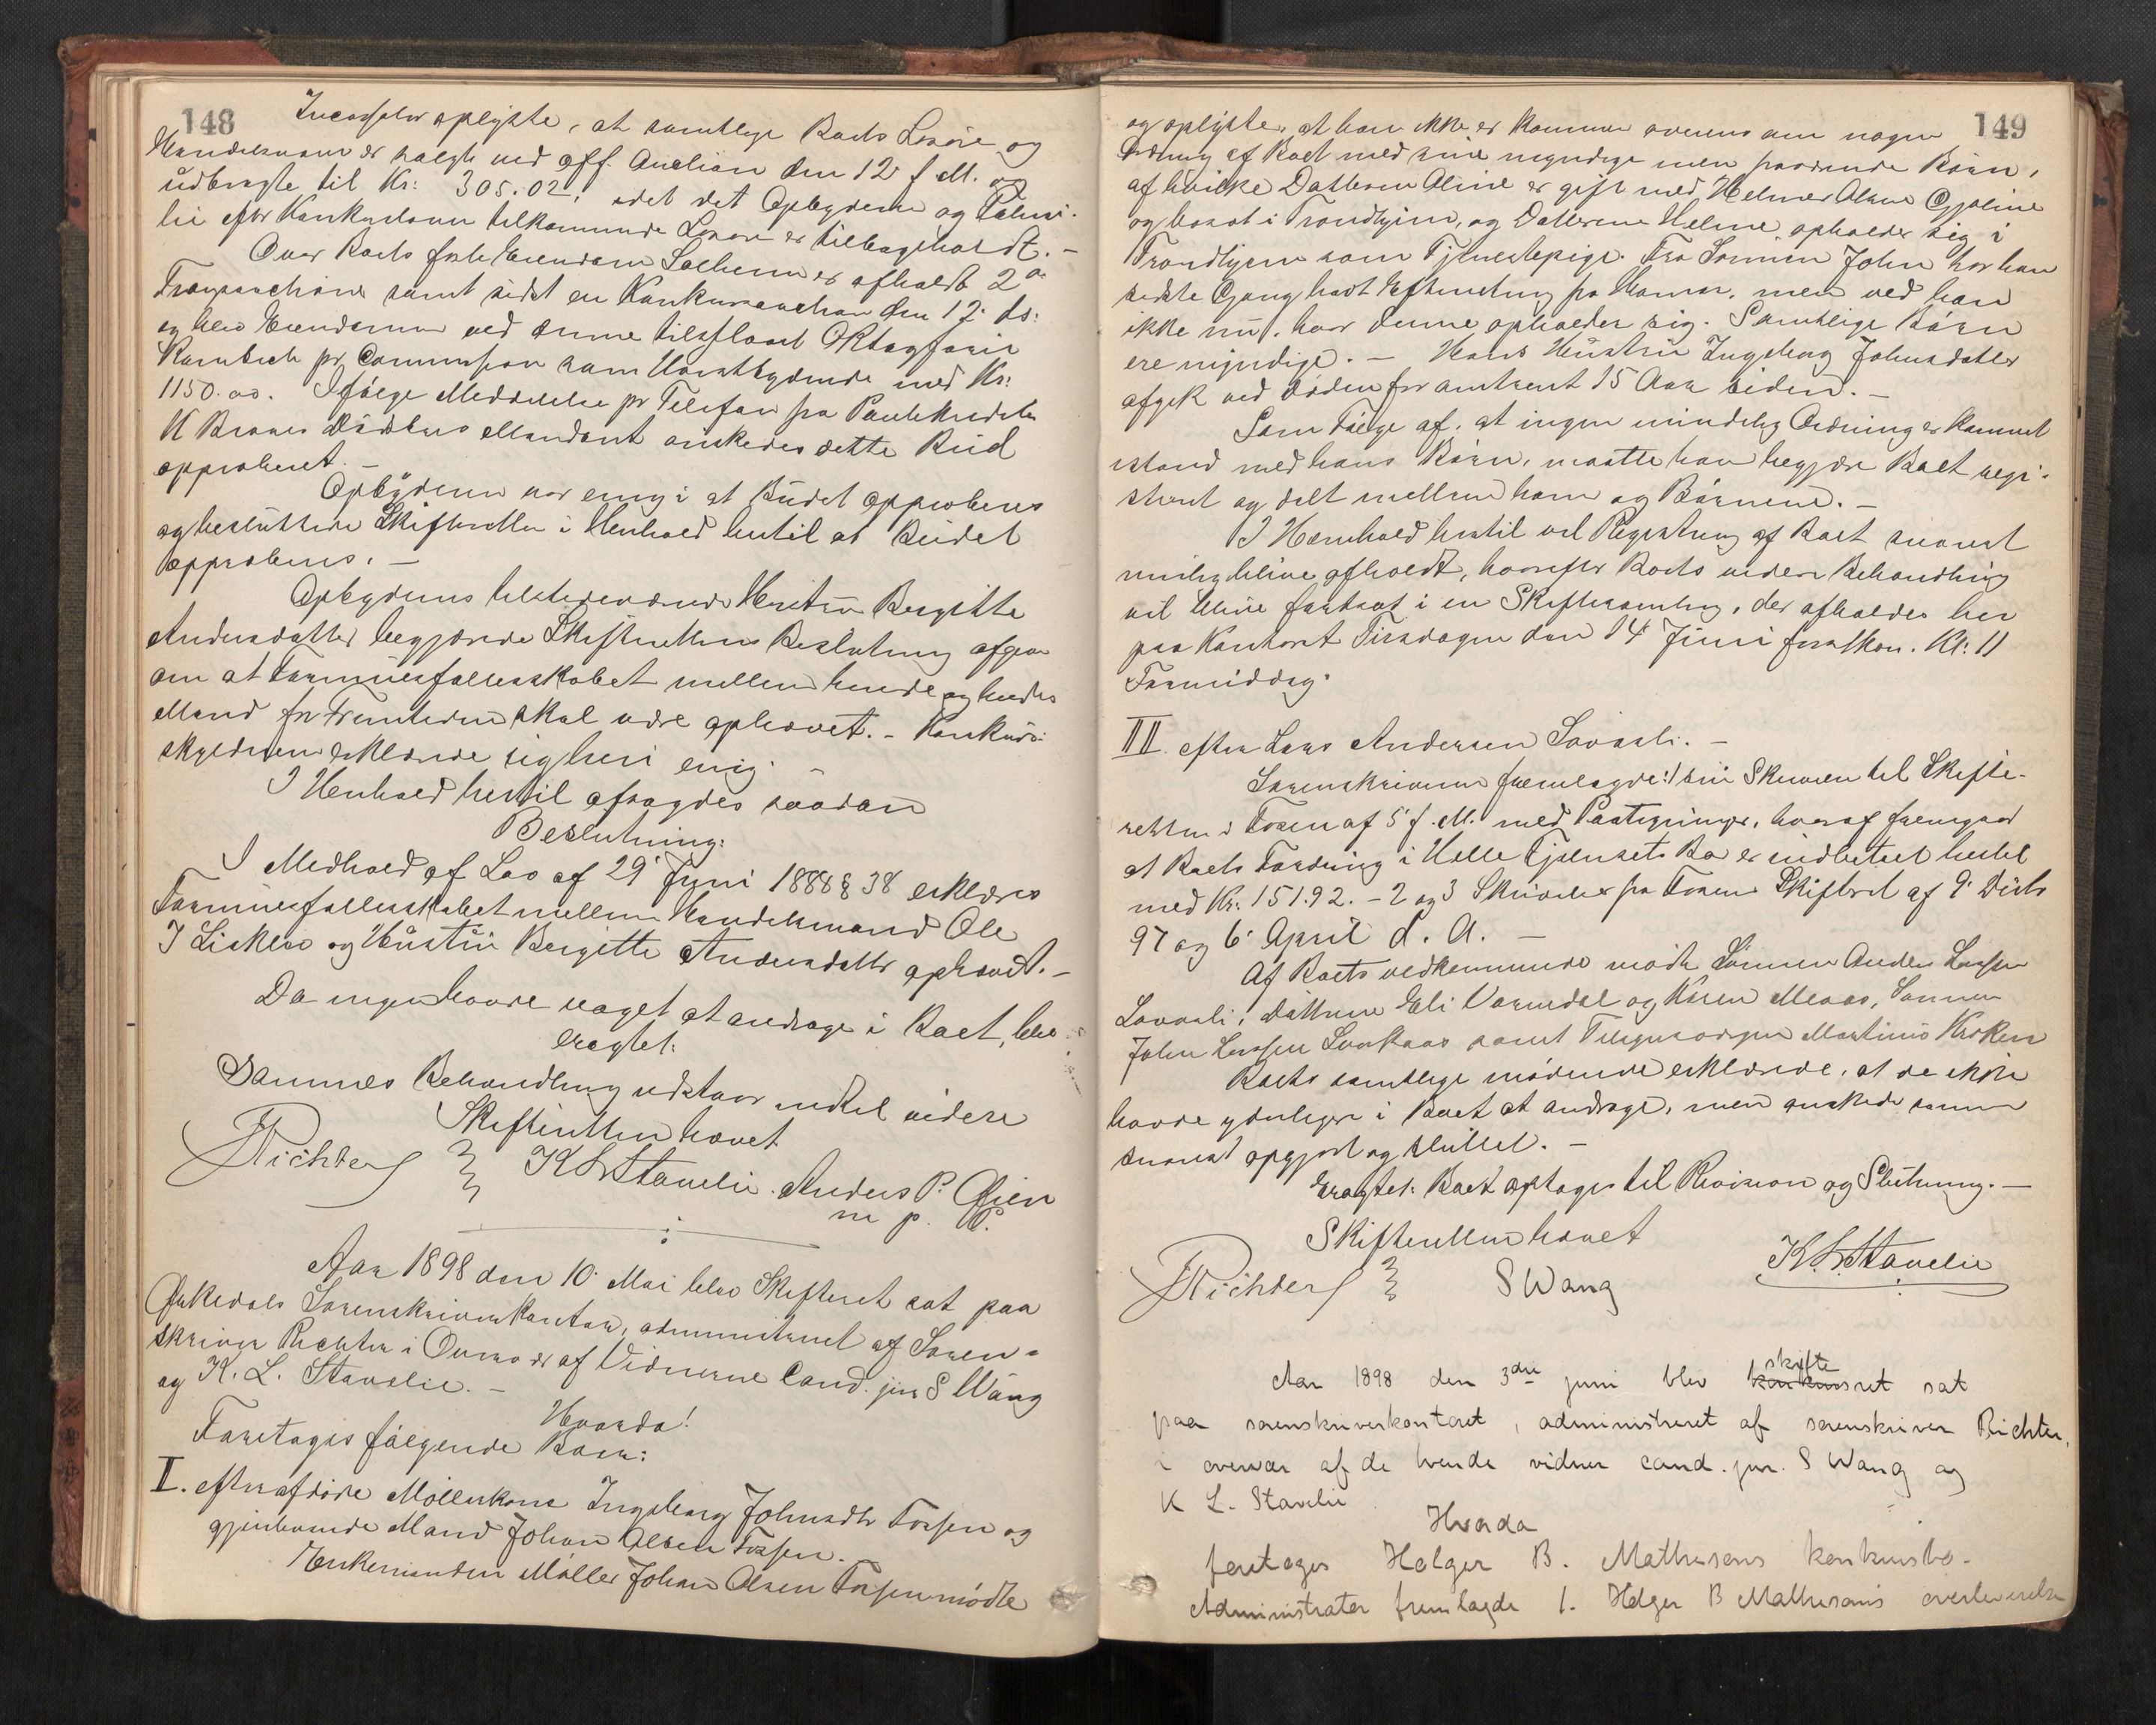 148
Incassator oplyste, at samtlige Boets Løsøre og
Handelsvarer er solgte ved off. Auction den 12' f. M. og
udbragte til Kr: 305.02, idet det Opbyderen og Fami-
lie efter Konkursloven tilkommende Løsøre er tilbageholdt. -
Over Boets faste Eiendom Solheim er afholdt 2de
Tvangsauctioner samt sidst en Konkursauction den 12' ds:
og blev Eiendommen ved denne tilslaaet
pr. Commission som Høistbydende med Kr:
1150.00. Ifølge Meddelelse pr Telefon fra
Mandant ønskedes dette Bud
approberet. -
Opbyderen var enig i at Budet approberes
og besluttede Skifteretten i Henhold hertil at Budet
approberes. -
Opbyderens tilstedeværende Hustru Bergitte
Andersdatter begjærede Skifterettens Beslutning afgiven
om at Formuesfællesskabet mellem hende og hendes
Mand for Fremtiden skal være ophævet. - Konkurs-
skyldneren erklærede sig heri enig. -
I Henhold hertil afsagdes saadan
Beslutning:
I Medhold af Lov af 29' Juni 1888 § 38 erklæres
Formuesfællesskabet mellem Handelsmand Ole
J Liskleo og Hustru Bergitte Andersdatter ophævet. -
Da ingen havde noget at andrage i Boet, blev
eragtet:
Sammes Behandling udstaar indtil videre
Skifteretten hævet
Richter K L Stavelie. Anders P. Øien
m p. P.
Aar 1898 den 10' Mai blev Skifteret sat paa
Orkedals Sorenskriverkontor, administreret af Soren-
skriver Richter i Overvær af Vidnerne Cand. jur S Wang
og K. L. Stavelie. -
Hvorda!
Foretoges følgende Boer:
I. efter afdøde Møllerkone Ingeborg Johnsdtr Fossen og
gjenlevende Mand Johan Olsen Fossen. -
Enkemanden Møller Johan Olsen Fossen mødte
149
og oplyste, at han ikke er kommen overens om nogen
Ordning af Boet med sine myndige men fraværende Børn,
af hvilke Datteren Oline er gift med Helmer Olsen Gjølme
og bosat i Trondhjem, og Datteren Helene opholder sig i
Trondhjem som Tjenestepige. Fra Sønnen John har han
sidste Gang havt Efterretning fra Hamar, men ved han
ikke nu, hvor denne opholder sig. Samtlige Børn
ere myndige. - Hans Hustru Ingeborg Johnsdatter
afgik ved Døden for omtrent 15 Aar siden. -
Som Følge af, at ingen mindelig Ordning er kommet
istand med hans Børn, maatte han begjære Boet regi-
streret og delt mellem ham og Børnene. -
I Henhold hertil vil Registrering af Boet snarest
mulig blive afholdt, hvorefter Boets videre Behandling
vil blive fortsat i en Skiftesamling, der afholdes her
paa Kontoret Tirsdagen den 14' Juni førstkom. Kl: 11
Formiddag.
II. efter Lars Andersen Lovasli. -
Sorenskriveren fremlagde: 1 sin Skrivelse til Skifte-
retten i Fosen af 5' f. M. med Paategninger, hvoraf fremgaar
at Boets Fordring i Bo er indbetalt hertil
med Kr. 151.92. - 2 og 3 Skrivelser fra Fosens Skifteret af 9'
97 og 6' April d. A. -
Af Boets vedkommende mødte Sønnen Anders Larsen
Lovasli, Døttrene Eli Vormdal og Karen Moas, Sønnen
John Larsen samt Tilsynsværgen Martinus Kroken
Boets samtlige mødende erklærede, at de ikke
havde yderligere i Boet at andrage, men ønskede samme
snarest opgjort og sluttet. -
Eragtet: Boet optages til Revision og Slutning. -
Skifteretten hævet
Richter S Wang K. L. Stavelie
Aar 1898 den 3die juni blev skifte
konkursret sat
paa sorenskriverkontoret, administreret af sorenskriver Richter,
i overvær af de tvende vidner cand. jur. S Wang og
K L. Stavelie.
Hvorda
foretoges Holger B. Mathesens konkursbo.
Administrator fremlagde 1. Holger B Mathesens overleverelse